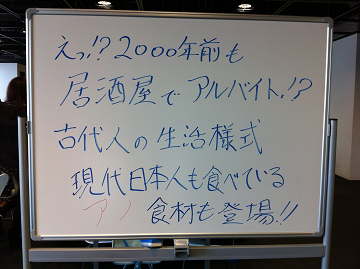 えっ!? 2000年前も
居酒屋でアルバイト!?
古代人の生活様式
現代日本人も食べている
アノ 食材も登場!!